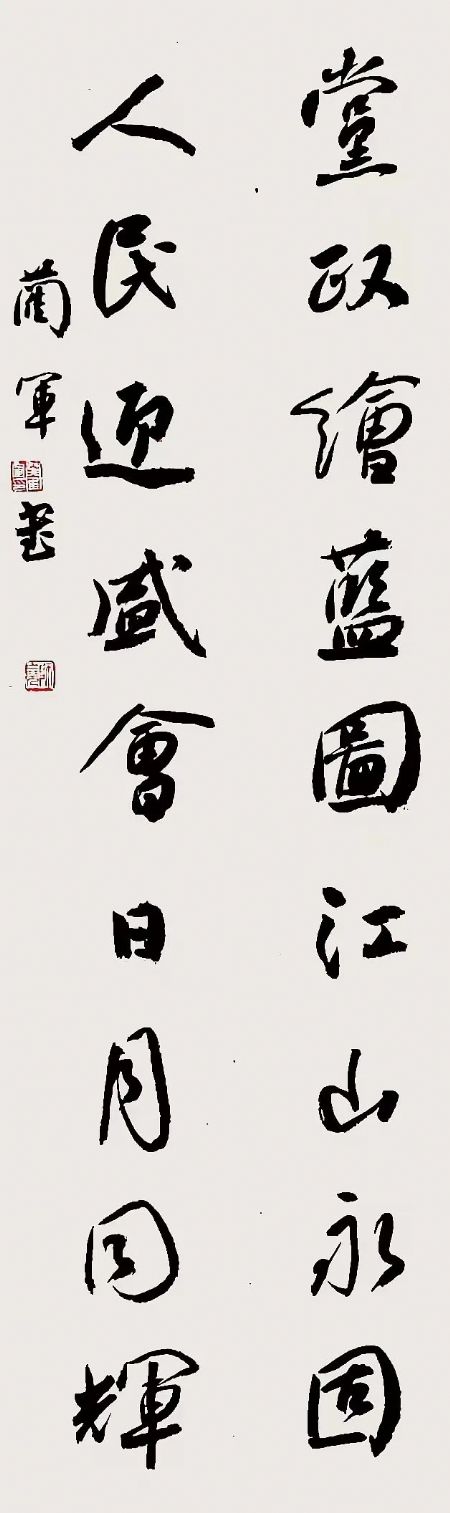 黨政繪藍圖江山永固
人民迎盛會日月同輝
藺軍書